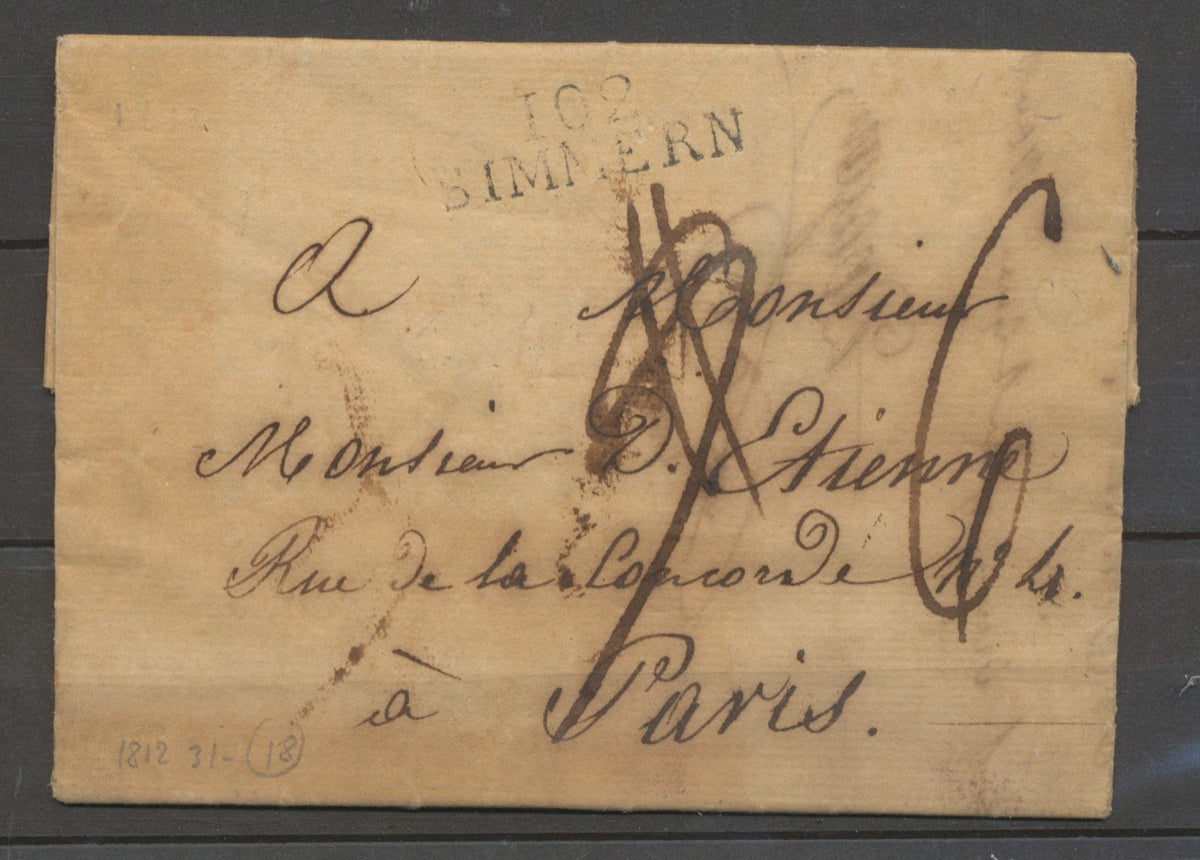 102
SIMMERN
A Monsieur
Monsieur D. Etienne
Rue de la Concorde No 4.
à Paris.
6
1812 31- 18